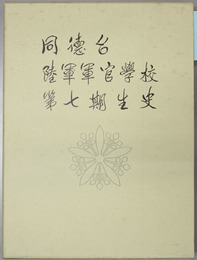 同德台
陸軍軍官學校
第七期生史